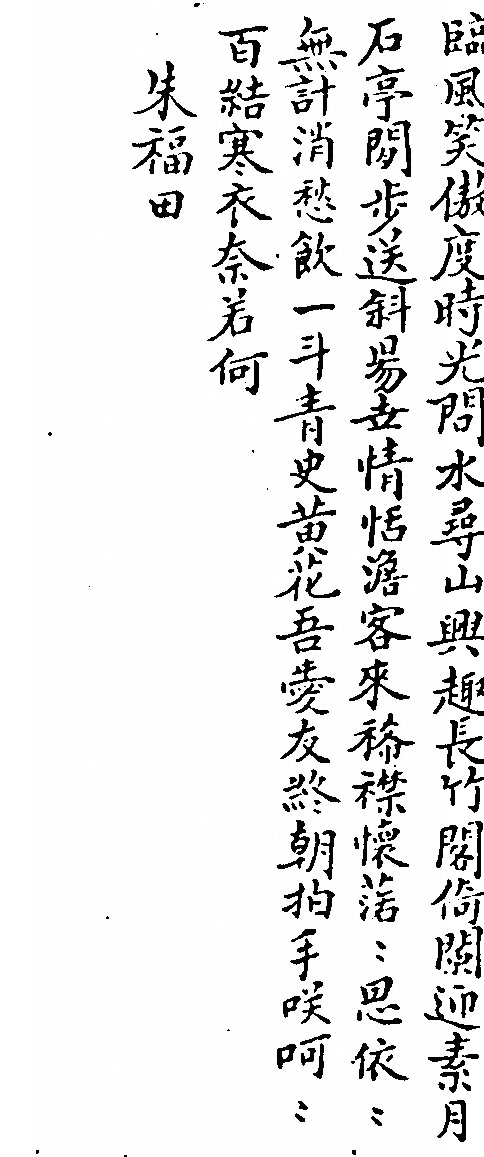 臨風笑傲度時光問水尋山興趣長竹閣倚闌迎素月
石亭閑步送斜陽世情恬澹客來稀襟懷落〻思依〻
無計消愁飲一斗青史黃花吾愛友終朝拍手咲呵〻
百結寒衣奈若何
朱福田